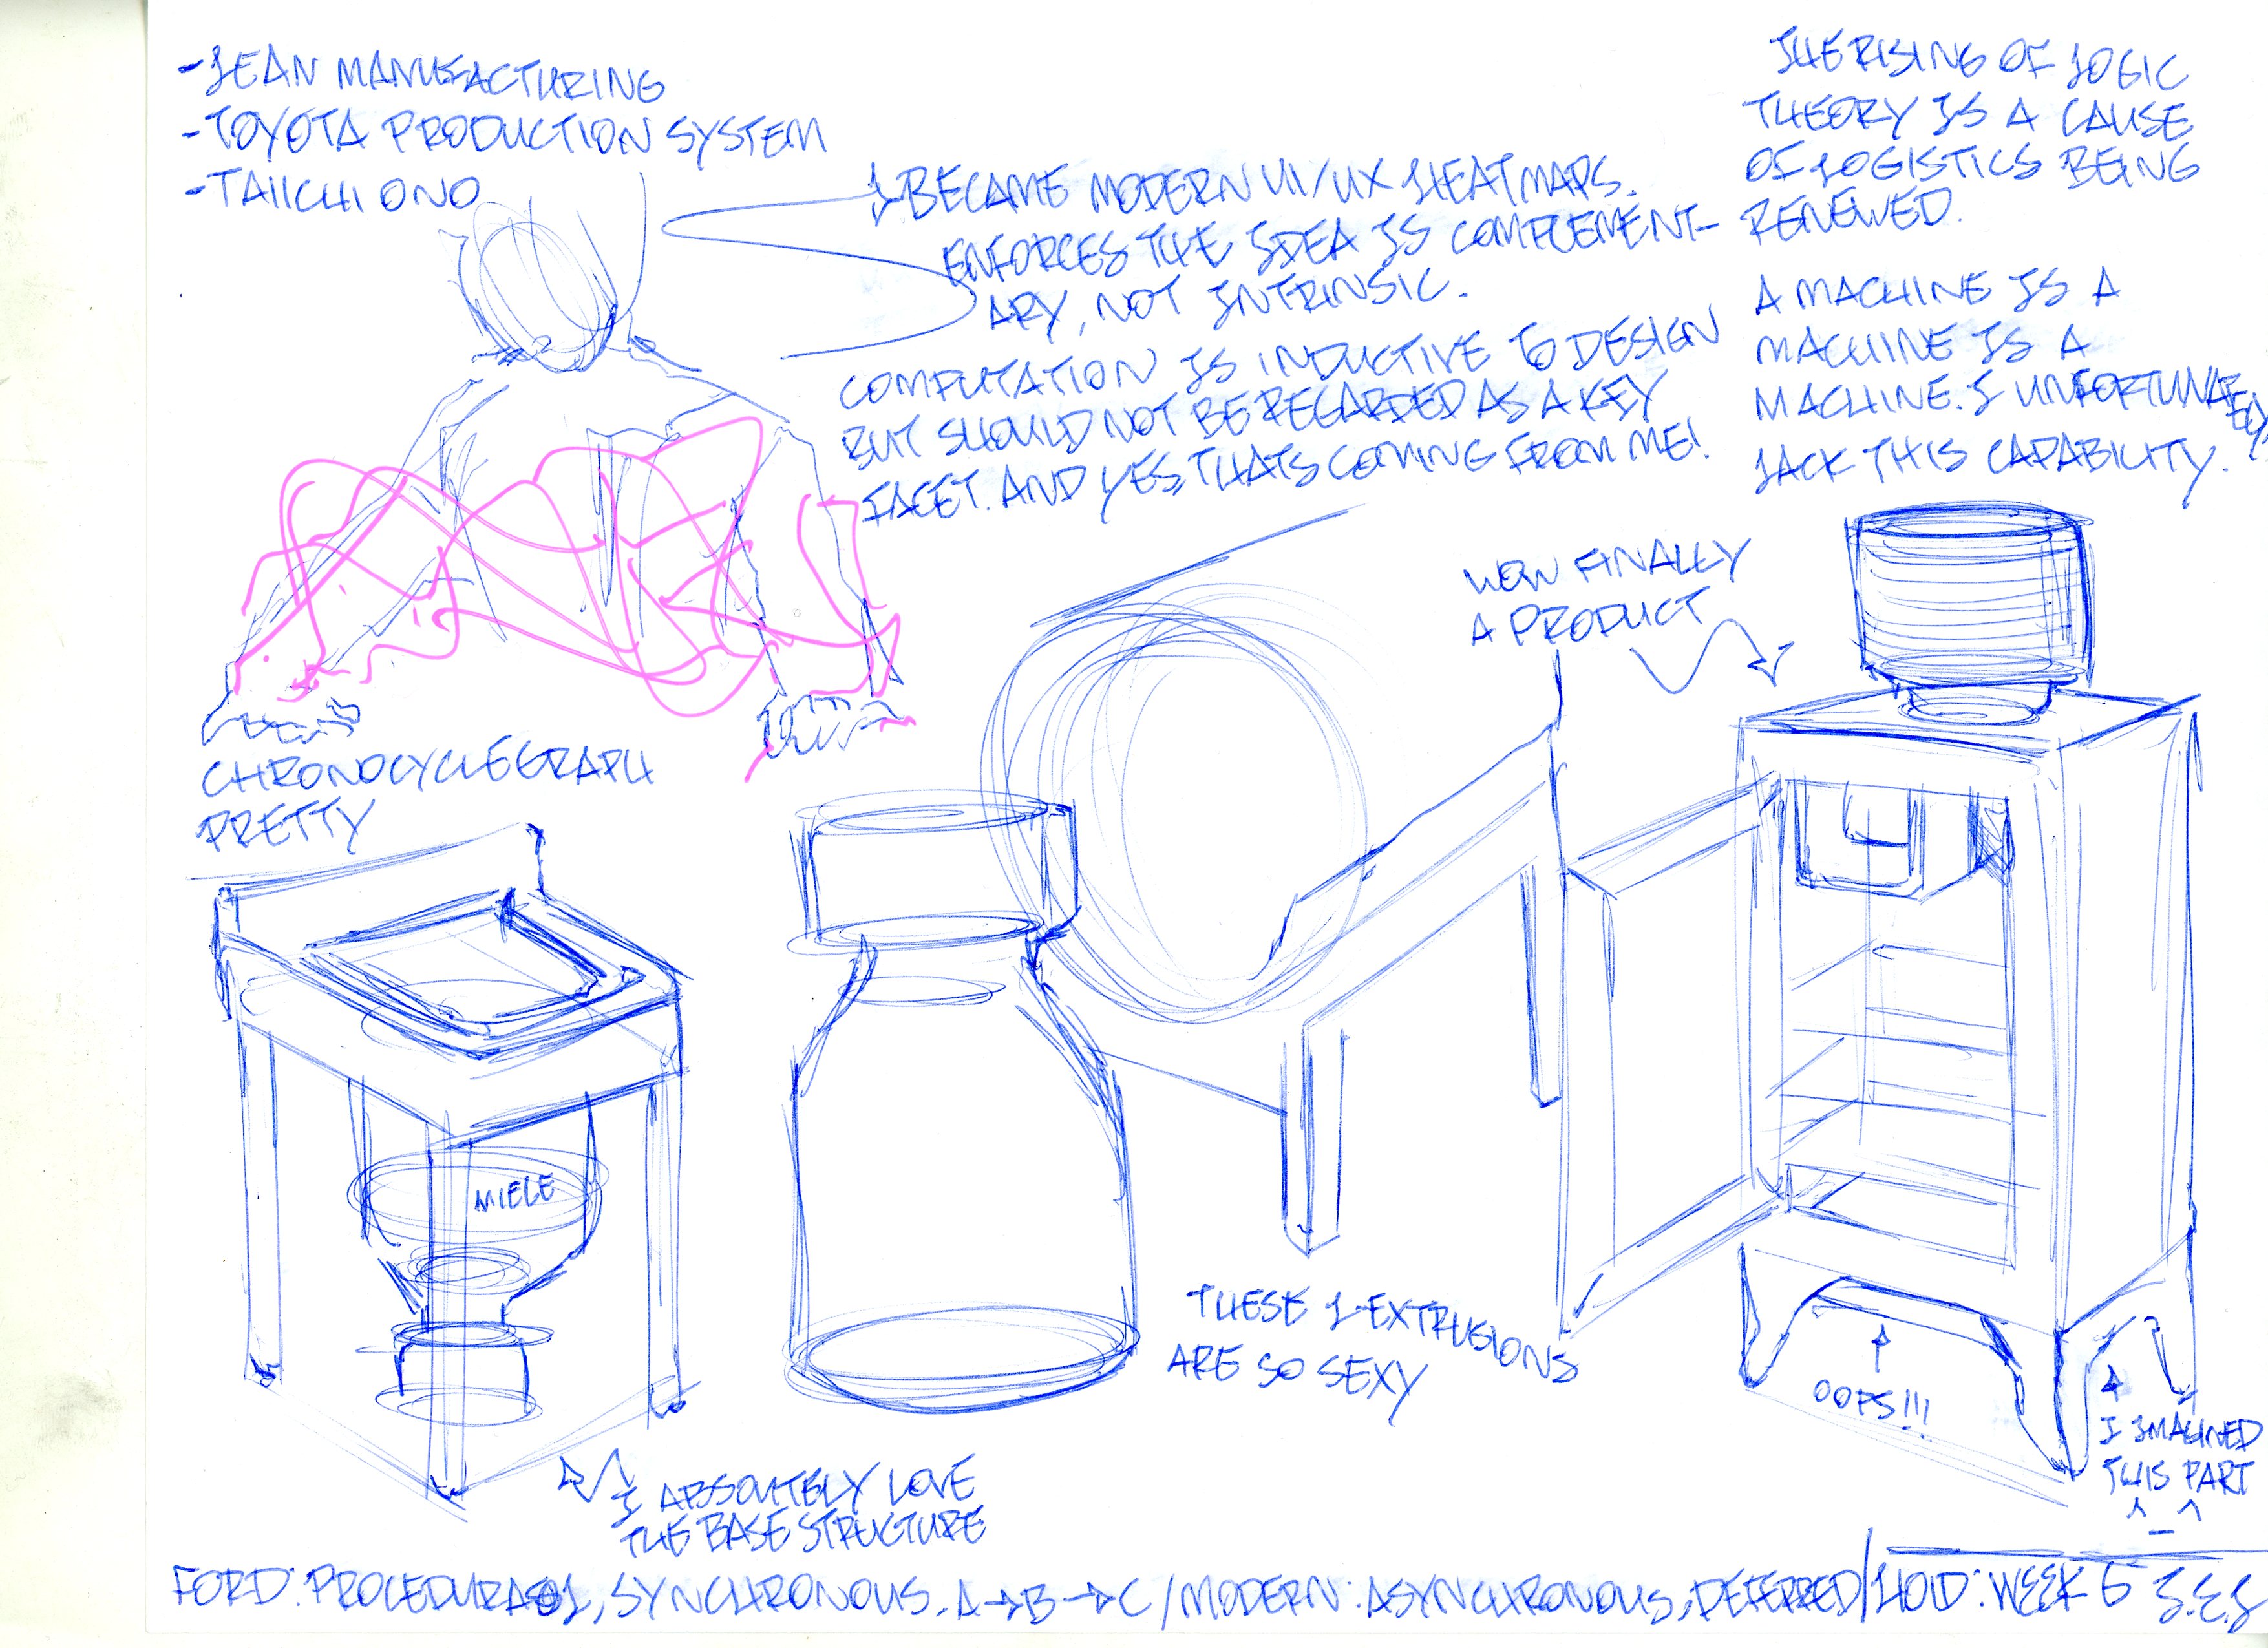 -LEAN MANUFACTURING
-TOYOTA PRODUCTION SYSTEM
-TAIICHI ONO
↳BECAME MODERN UI/UX HEATMAPS.
ENFORCES THE IDEA IS COMPLEMENT-
ARY, NOT INTRINSIC.
COMPUTATION IS INDUCTIVE TO DESIGN
BUT SHOULD NOT BE REGARDED AS A KEY
FACET. AND YES, THATS COMING FROM ME!
THE RISING OF LOGIC
THEORY IS A CAUSE
OF LOGISTICS BEING
RENEWED.
A MACHINE IS A
MACHINE IS A
MACHINE. I UNFORTUNATELY
LACK THIS CAPABILITY.
WOW FINALLY
A PRODUCT
CHRONOCYCLEGRAPH
PRETTY
MIELE
THESE L-EXTRUSIONS
ARE SO SEXY
OOPS!!!
I IMAGINED
THIS PART
^_^
I ABSOLUTELY LOVE
THE BASE STRUCTURE
FORD: PROCEDURAL, SYNCHRONOUS. A→B→C / MODERN: ASYNCHRONOUS, DEFERRED/HOID: WEEK 6